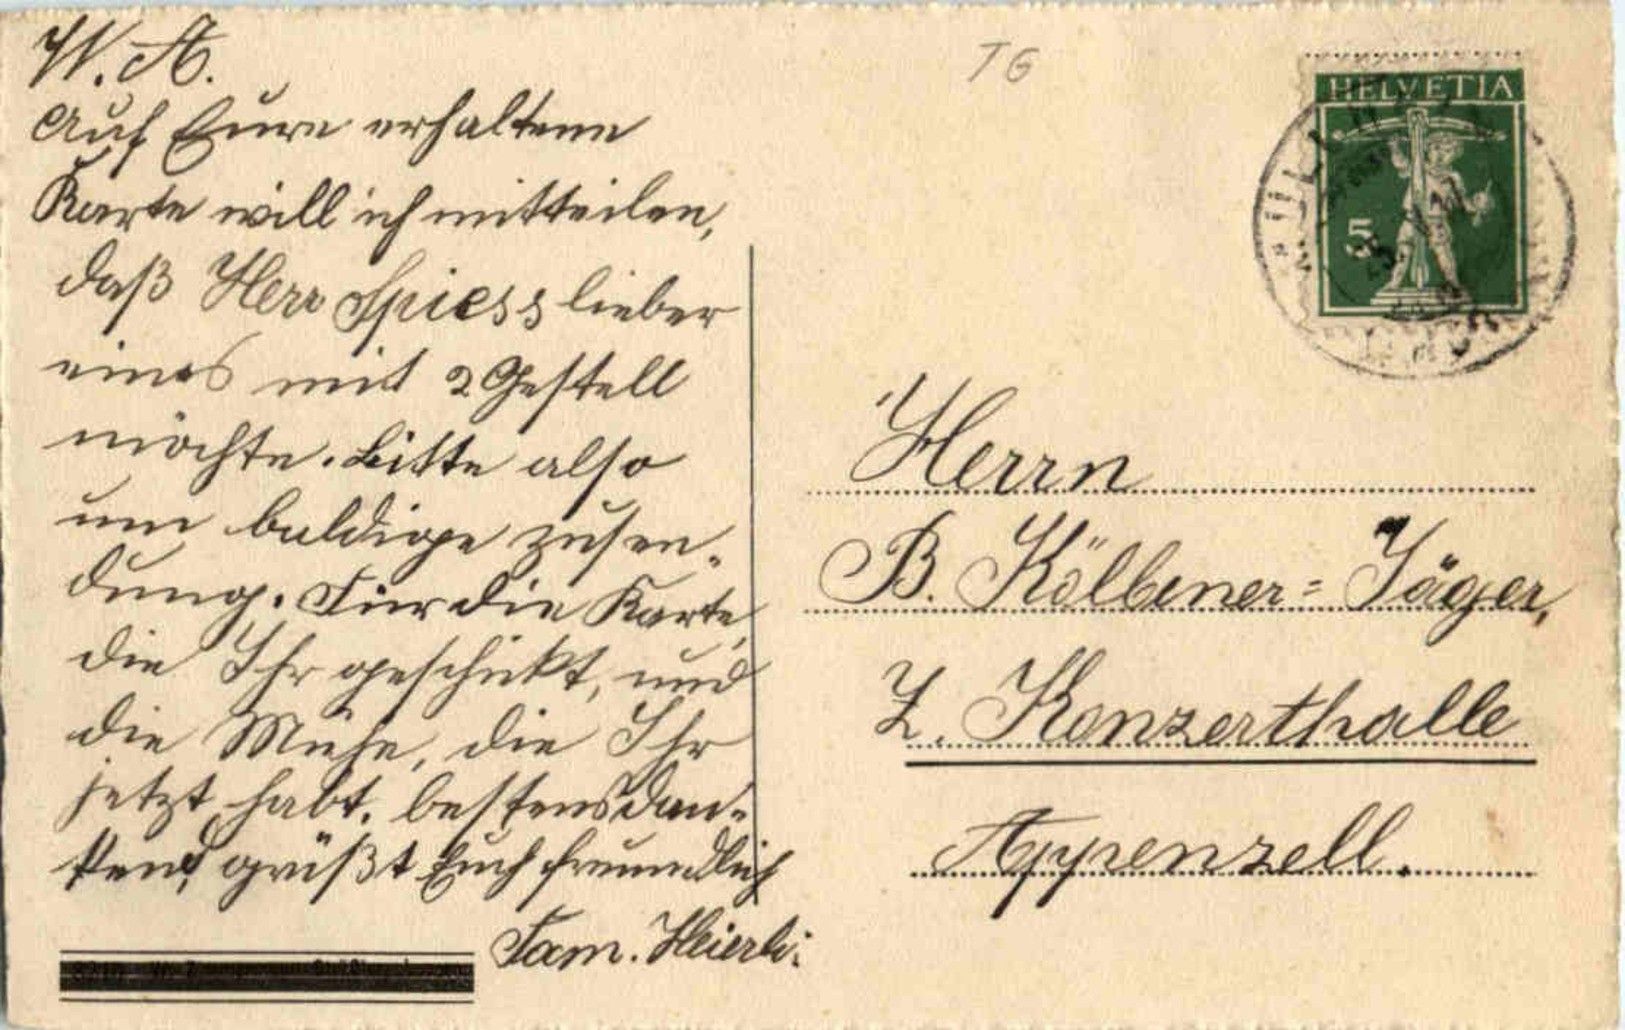 W. A.
Auf Eure erhaltene
Karte will ich mitteilen,
daß Herr Spiess lieber
eines mit 2 Gestell
möchte. Bitte also
um baldige zusen-
dung. Für die Karte,
die Ihr geschickt, und
die Mühe, die Ihr
jetzt habt. bestens dan-
kend, grüßt Euch freundlich
Fam. Heierli.
TG
HELVETIA
5
Herrn
B. Kölbener = Jäger,
Z. Konzerthalle
Appenzell.